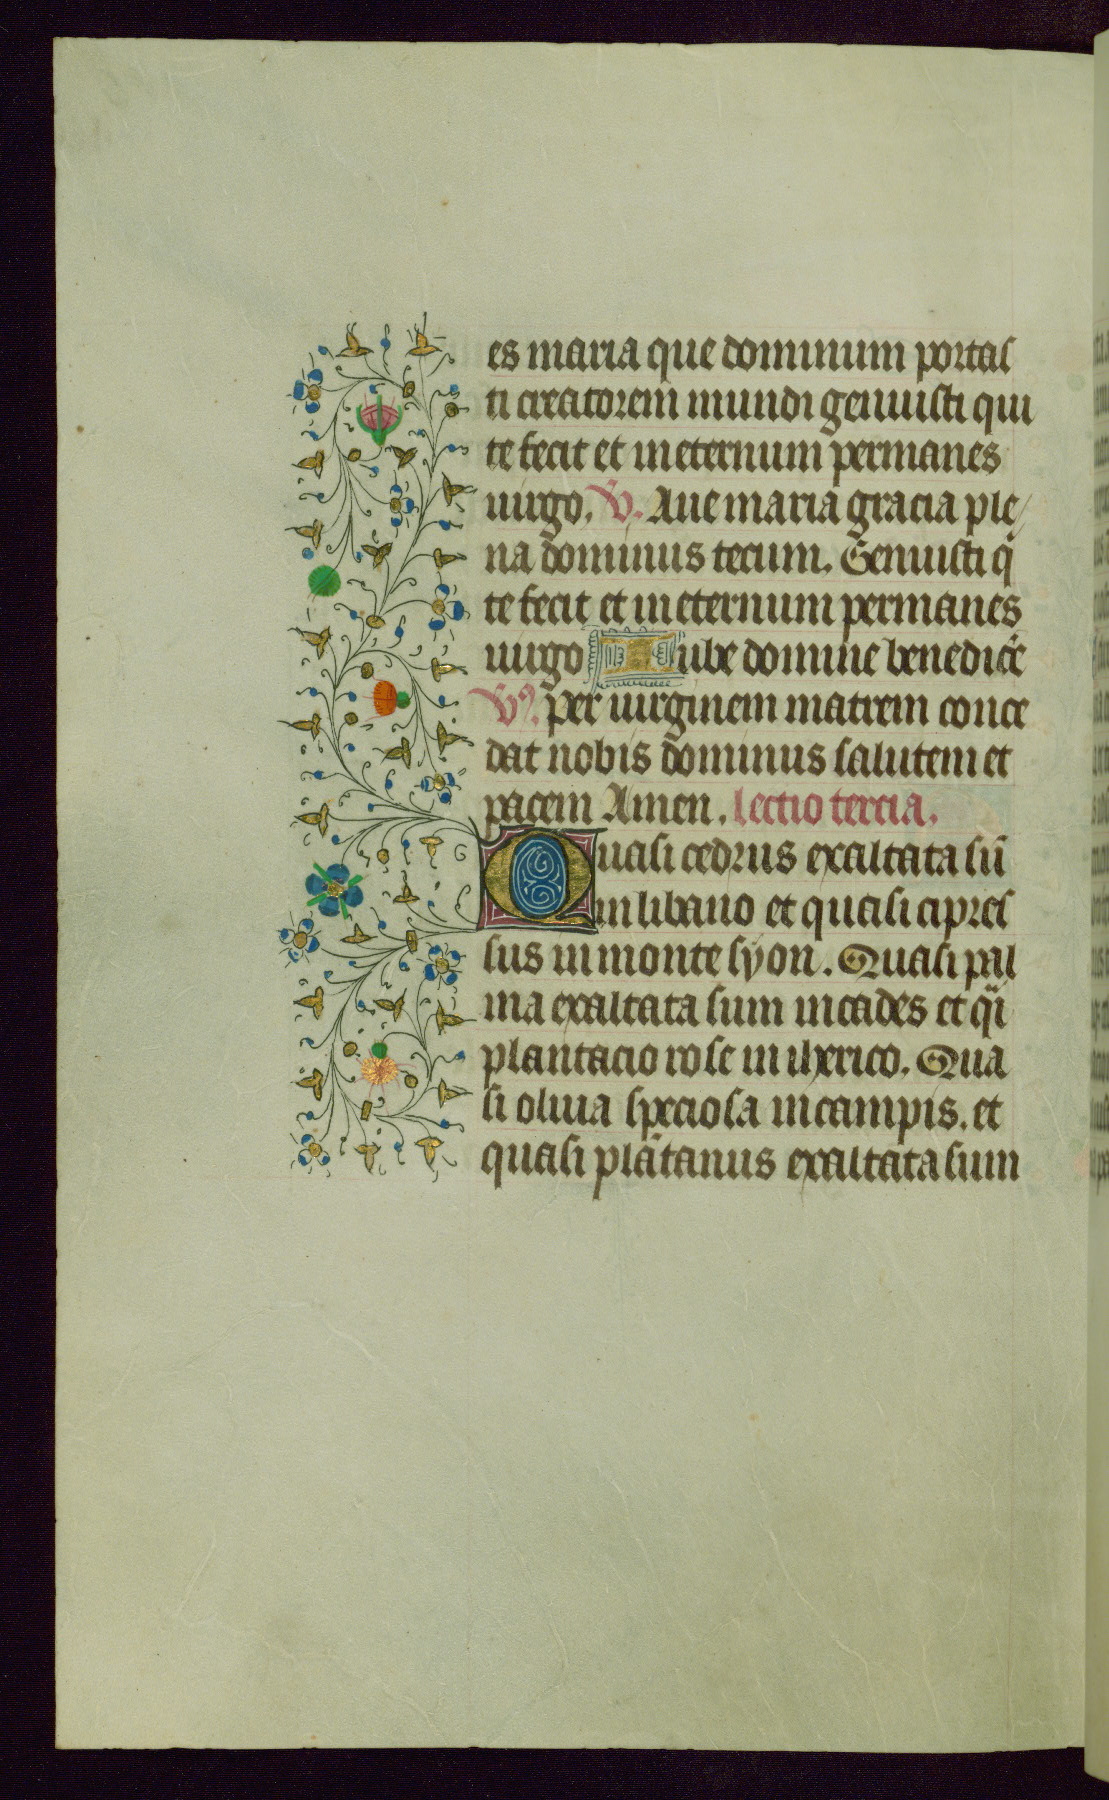 es maria que dominum portas
ti creatorem mundi genuisti qui
te fecit et in eternum permanes
uirgo. V. Aue maria gracia ple
na dominus tecum. Genuisti q̄
te fecit et in eternum permanes
uirgo Iube domine benedic̄e
V̉. per uirginem matrem conce
dat nobis dominus salutem et
pacem Amen. lectio tercia.
Quasi cedrus exaltata sū
in libano et quasi cipres
sus in monte syon. Quasi pal
ma exaltata sum in cades et q̄i
plantacio rose in iherico. Qua
si oliua speciosa in campis. et
quasi platanus exaltata sum